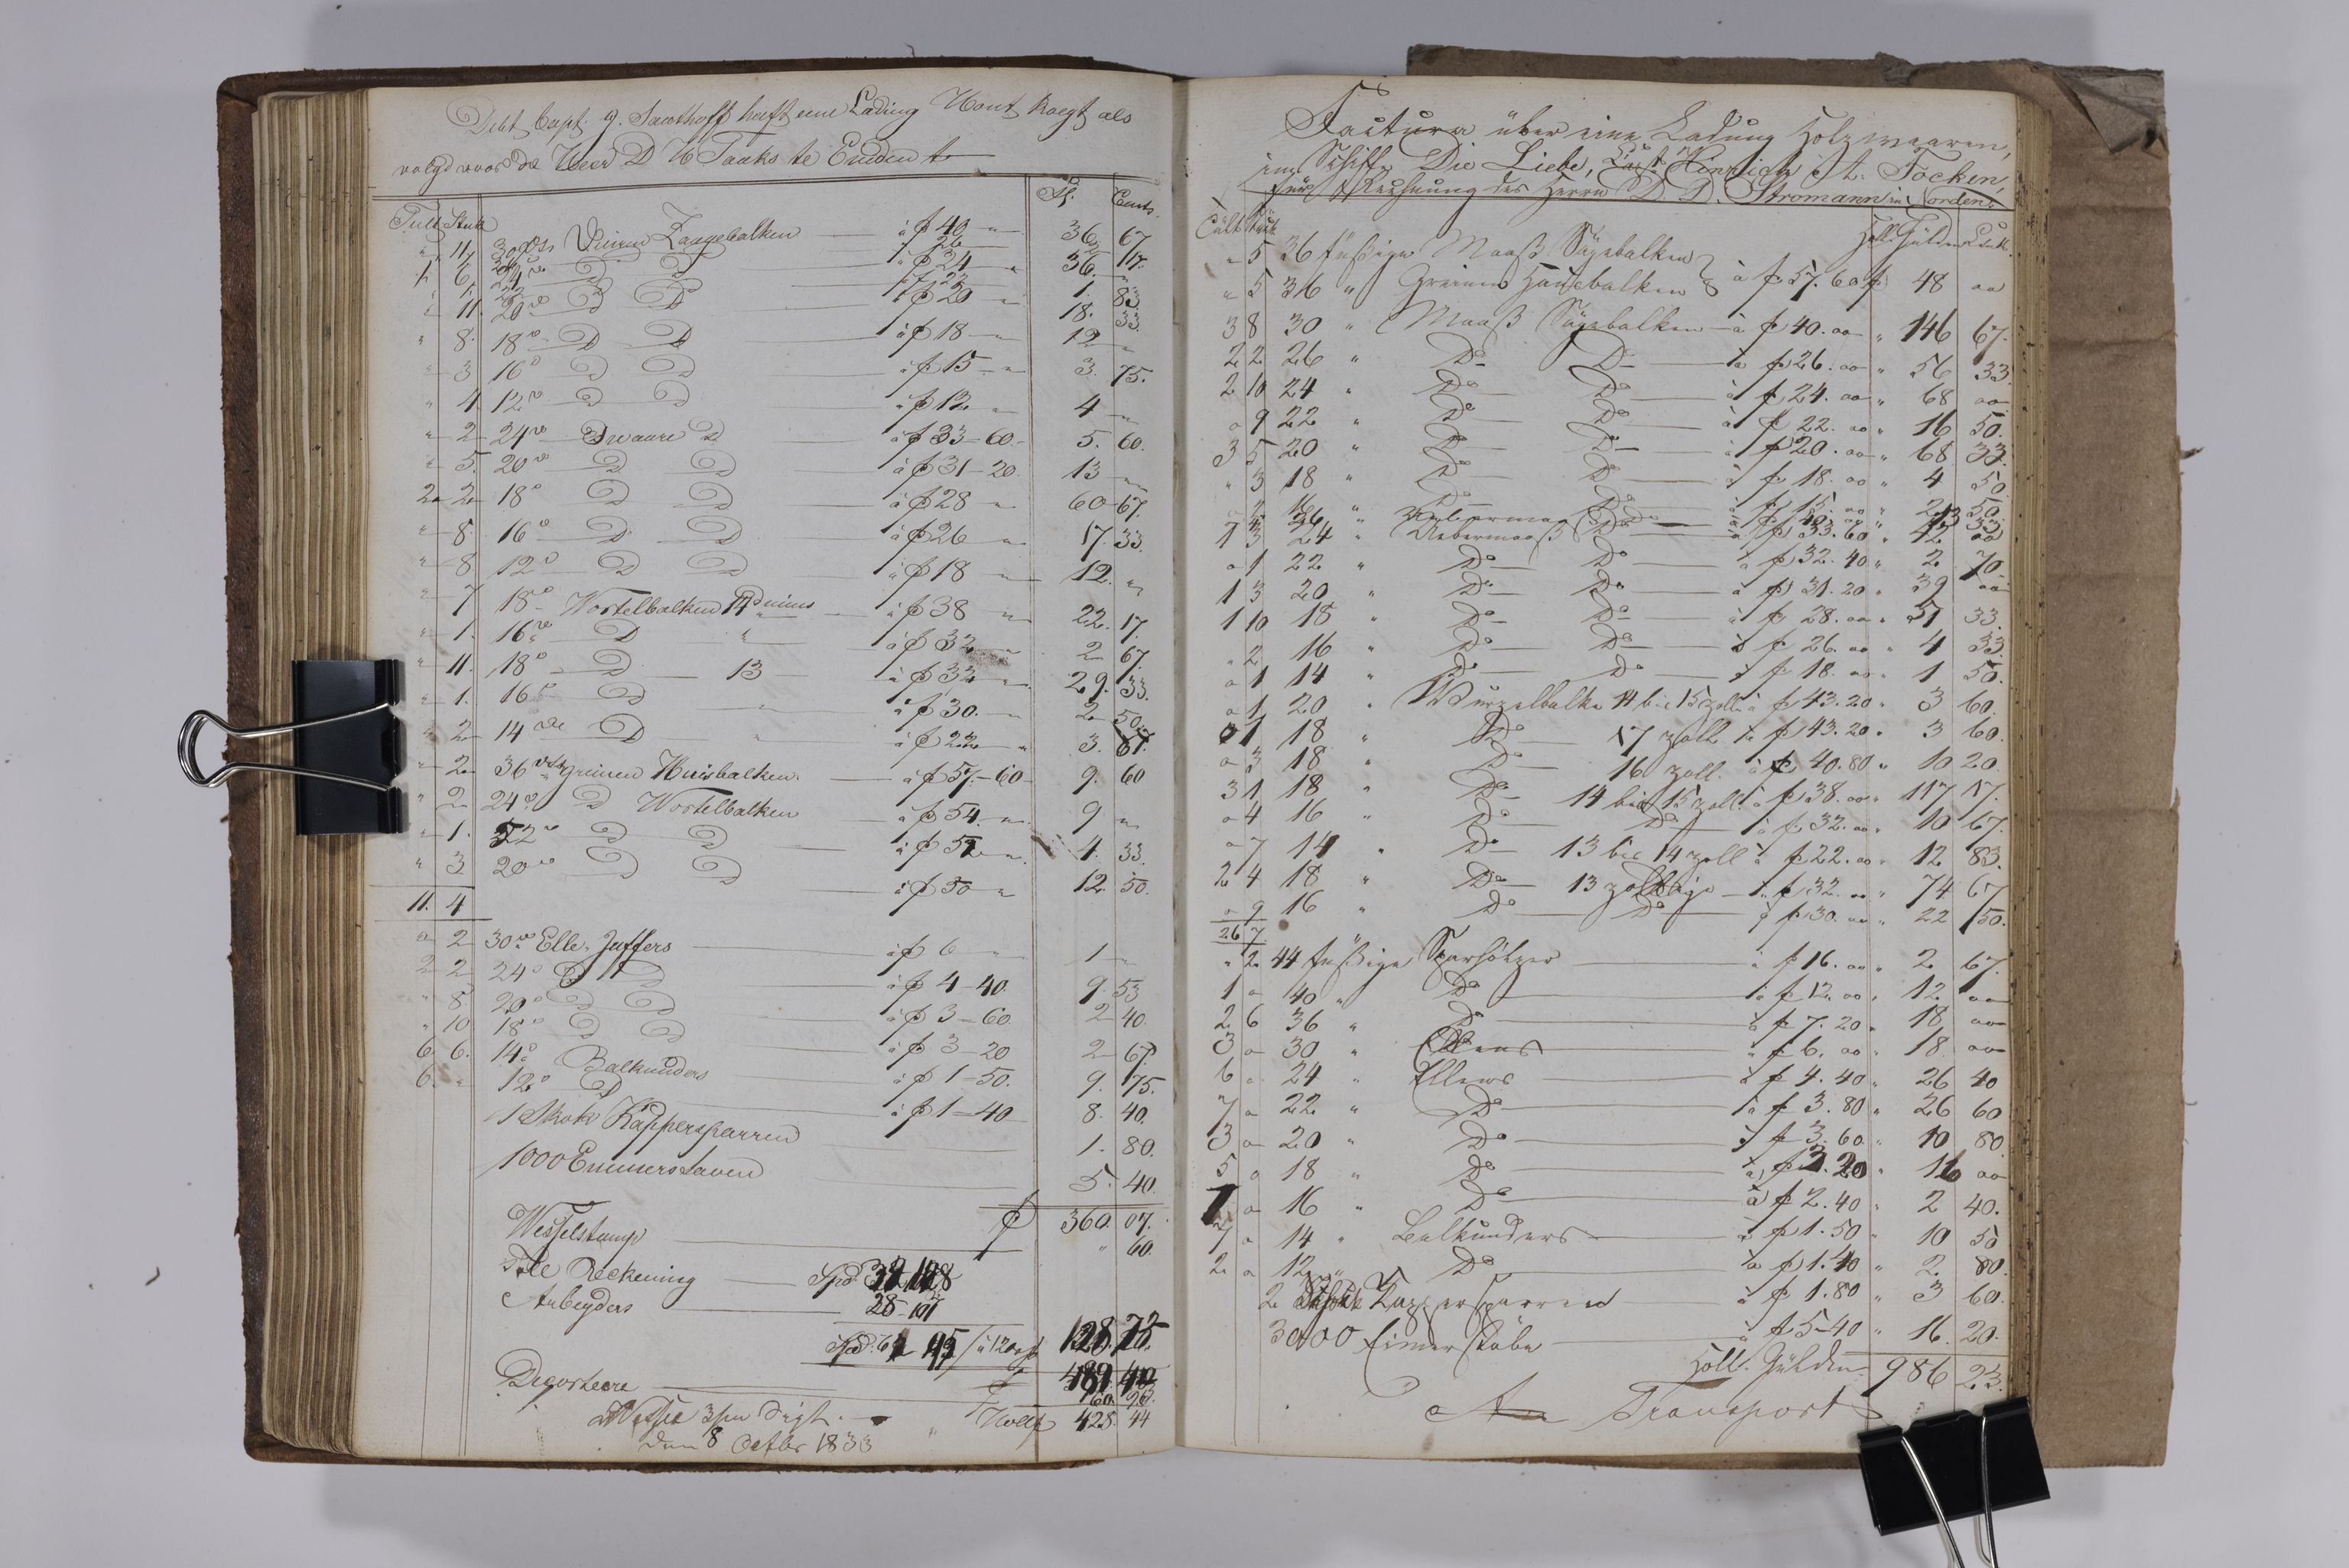 Debt Capt. J. Santhoff heeft eene Lading Hout kregt als
volgd voor de Heer D H Taaks te Emden t
Tult Stuk fl. Cents.
" 11 30 vts Duinen Zaagebalken à f 40 " 36 67
26 D D 26
1 6 24 vo D D à f 24 " 36. "
" 1 22 D D 22 1. 83
" 11. 20 vo D D à f 20 " 18. 33.
" 8. 18 vo D D à f 18 " 12 "
" 3 16 o D D à f 15 " 3. 75.
" 4 12 vo D D à f 12 " 4 "
" 2 24 vo Swaare D à f 33-60. 5. 60.
" 5. 20 vo D D à f 31-20 13 "
2 2 18 o D D à f 28 " 60 67.
" 8. 16 o D D à f 26 " 17. 33.
" 8 12 o D D à f 18 " 12. "
" 7 18 o Wortelbalken 14 Duims à f 38 " 22. 17.
" 1. 16 vo D " à f 32 " 2 67.
" 11. 18 o D 13 à f 32 " 29. 33.
" 1. 16 o D " à f 30. " 2 50
" 2 14 de D " à f 22 " 3. 67.
" 2 36 vts greinen Huisbalken. à f 57-60 9. 60
" 2 24 vo D Wortelbalken à f 54 " 9 "
" 1. 22 vo D D à f 52 " 4. 33.
" 3 20 vo D D à f 50 " 12. 50.
11. 4
" 2 30 vo Elle. Juffers à f 6 " 1 "
2 2 24 o D D à f 4-40. 9. 53
" 8 20 o D D à f 3-60. 2 40.
" 10 18 o D D à f 3-20 2 67.
6 6. 14 o Balkunders à f 1-50. 9. 75.
6. " 12 o D à f 1-40 8. 40.
1 Skok Kappersparren 1. 80.
1000 Emmerstaven 5. 40.
f 360. 07.
Wesselstamp " 60.
Tole Reckening Spd
Arbeyders 28-101
Spd. 45 / à 120 128. 73.
489 40
Decorteere 60. 96.
Wessel 3/m Digt. Hollf 428. 44
den 8 Octbr 1833
Factura über eine Ladung Holzwaaren,
im Schiffe Die Liebe, Capt. Hinrich A. Focken,
für Rechnung des Herrn D. D. Stromann in Norden.
Tült Stük Holl. Gülden Cent.
" 5 36 füßige Maaß Sägebalken
" 5 36 " Greinen Hausbalken à f 57. 60 f 48 oo
3 8 30 " Maaß Sägebalken à f 40. oo " 146 67.
2 2 26 " Do Do à f 26. oo " 56 33.
2 10 24 " Do Do à f 24. oo " 68 oo
o 9 22 " Do Do à f 22. oo " 16 50.
3 5 20 " Do Do à f 20. oo " 68 33.
" 3 18 " Do Do à f 18. oo " 4 50
" 2 16 " Do Do à f 15. oo " 2 50.
26 " Do à f 40. oo " 13 33
1 3 24 " Uebermaaß Do à f 33. 60 " 42 oo
o 1 22 " Do Do à f 32. 40 " 2. 70.
1 3 20 " Do Do à f 31. 20 " 39 oo
1 10 18 " Do Do à f 28. oo " 51 33.
" 2 16 " Do Do à f 26. oo " 4 33.
o 1 14 " Do Do à f 18. oo " 1 50.
o 1 20 " Wurzelbalke 14 bis 15 zoll à f 43. 20 " 3 60.
o 1 18 " Do 17 zoll à f 43. 20 " 3 60
o 3 18 " Do 16 zoll. à f 40. 80 " 10 20.
3 1 18 " Do 14 bis 15 zoll à f 38. oo " 117 17.
o 4 16 " Do Do à f 32. oo " 10 67.
o 7 14 " Do 13 bis 14 zoll à f 22. oo " 12 83.
2 4 18 " Do 13 zollige à f 32. oo " 74 67
o 9 16 " Do Do à f 30. oo " 22 50.
26 7.
" 2. 44 füßige Sparhölzer à f 16. oo " 2 67.
1 o 40 " Do à f 12. oo " 12 oo
2 6 36 " Do à f 7. 20 " 18 oo
3 o 30 " Ellens à f 6. oo " 18 oo
6 o 24 " Ellens à f 4. 40 " 26 40
7 o 22 " Do à f 3. 80 " 26 60
3 o 20 " Do à f 3. 60 " 10 80.
5 o 18 " Do à f 3. 20 " 16 oo
1 o 16 " Do à f 2. 40 " 2 40.
7 o 14 " Balkunders à f 1. 50 " 10 50
2 o 12 " Do à f 1. 40 " 2. 80.
2 Schok Kappersparren à f 1. 80 " 3 60.
3000 Eimerstäbe à f 5-40 " 16. 20.
Holl. Gülden 986 23.
An Transport